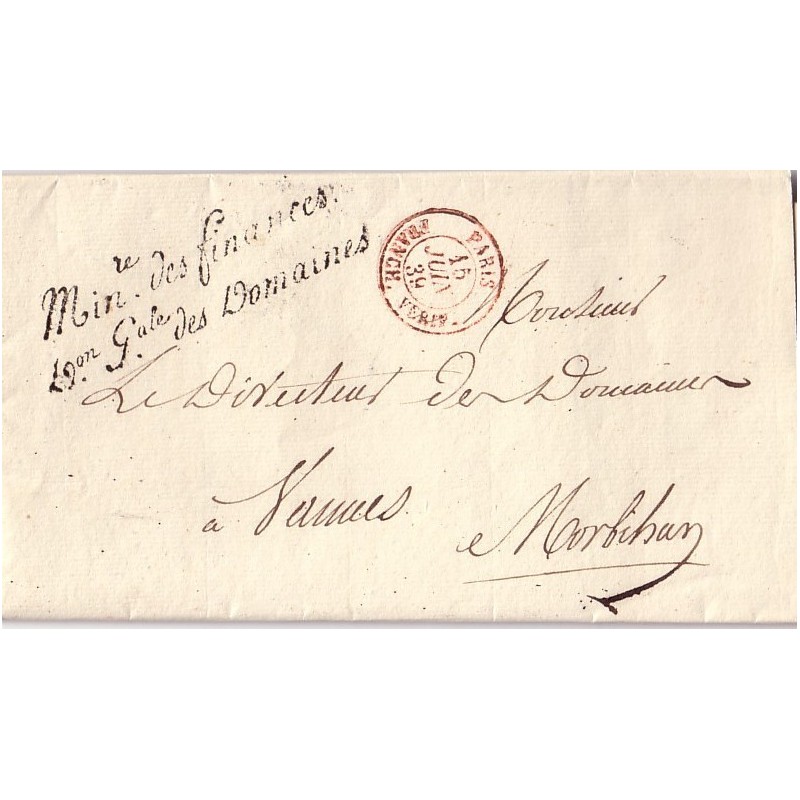 Min.re des finances.
D.on G.ale des Domaines
PARIS
15
JUIN
39
FRANCH
VERIF.
Monsieur
Le Directeur des Domaines
à Vannes
Morbihan